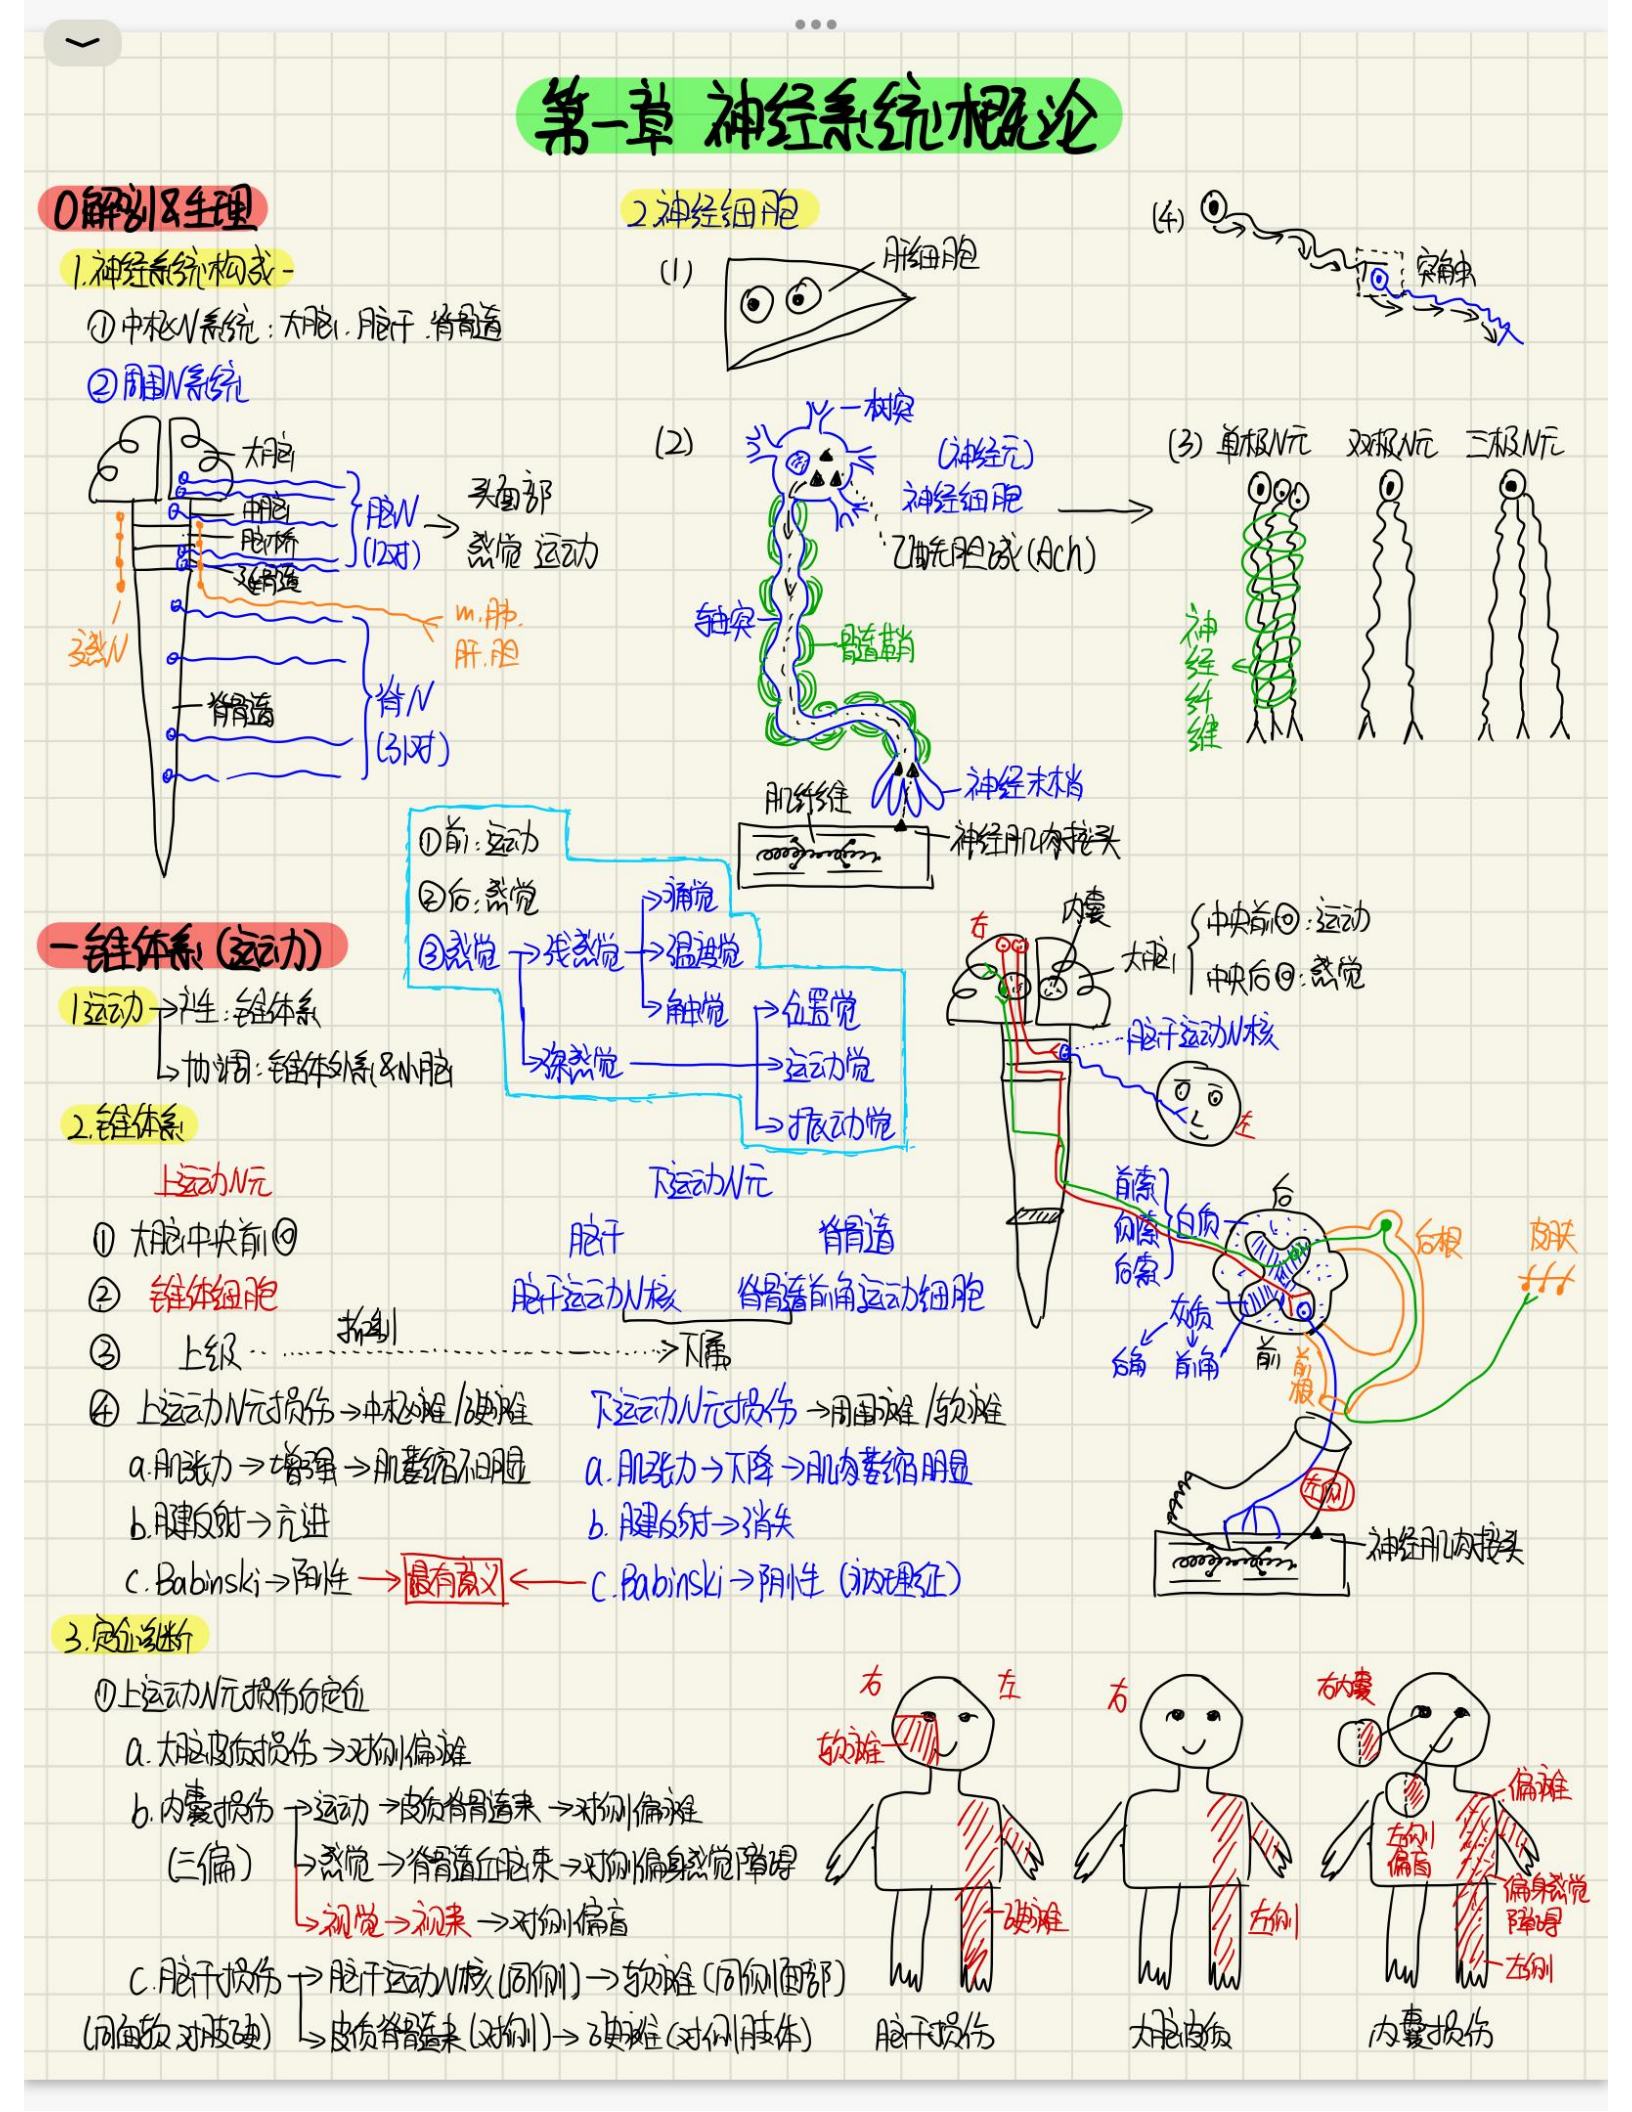 第一章 神经系统概论
0解剖&生理
1.神经系统构成-
①中枢N系统：大脑、脑干、脊骨道
②周围N系统
大脑
中脑
脑桥
延骨道
脑N
(12对)
头面部
感觉 运动
交感N
m.肺.
肝.胆
脊骨道
脊N
(31对)
2.神经细胞
(1)
肝细胞
(2)
树突
(神经元)
神经细胞
乙酰胆碱(Ach)
轴突
骨道鞘
神经末梢
肌纤维
神经肌肉接头
(3) 单极N元 双极N元 三极N元
神经纤维
(4)
突触
①前：运动
②后：感觉
③感觉→浅感觉→痛觉
→温度觉
→触觉
→深感觉→位置觉
→运动觉
→振动觉
一 锥体系(运动)
1.运动→产生：锥体系
→协调：锥体外系&小脑
2.锥体系
上运动N元 下运动N元
①大脑中央前回 脑干 脊骨道
②锥体细胞 脑干运动N核 脊骨道前角运动细胞
③上级 抑制 →下属
④上运动N元损伤→中枢瘫/硬瘫 下运动N元损伤→周围瘫/软瘫
a.肌张力→增强→肌萎缩不明显 a.肌张力→下降→肌肉萎缩明显
b.腱反射→亢进 b.腱反射→消失
c.Babinski→阳性→最有意义← c.Babinski→阴性(病理征)
右
内囊
大脑
中央前回：运动
中央后回：感觉
脑干运动N核
左
前索
侧索
后索
白质
后
后根
皮肤
灰质
后角
前角
前
前根
左侧
神经肌肉接头
3.定位诊断
①上运动N元损伤后定位
a.大脑皮质损伤→对侧偏瘫
b.内囊损伤→运动→皮质脊骨道束→对侧偏瘫
(三偏) →感觉→脊骨道丘脑束→对侧偏身感觉障碍
→视觉→视束→对侧偏盲
c.脑干损伤→脑干运动N核(同侧)→软瘫(同侧面部)
(同面软 对肢硬) →皮质脊骨道束(对侧)→硬瘫(对侧肢体)
右 左
软瘫
硬瘫
脑干损伤
右
左侧
大脑皮质
右内囊
偏瘫
左侧
偏盲
偏身感觉
障碍
左侧
内囊损伤